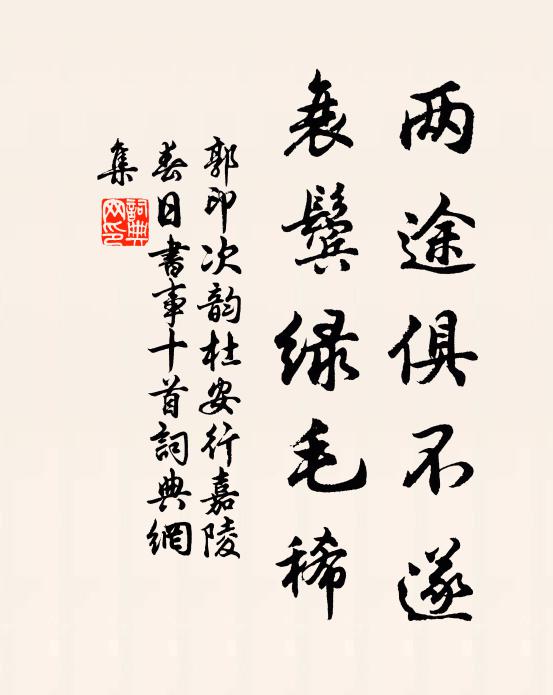 两途俱不遂
衰鬓绿毛稀
郭印次韵杜安行嘉陵
春日書事十首詞典網
集
詞典
网印